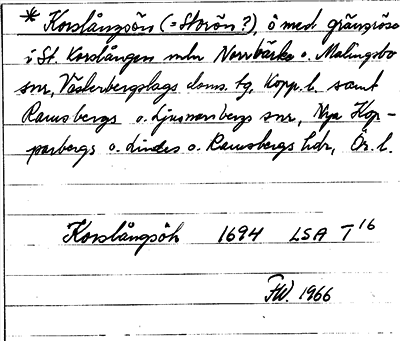 * Korslångsön (= Storön?), ö med gränsröse
i St. Korslången mln Norrbärke o. Malingsbo
snr, Västerbergslags doms. tg, Kopp. l. samt
Ramsbergs o. Ljusnarsbergs snr, Nya Kop-
parbergs o. Lindes o. Ramsbergs hdr, Ör. l.
Korslångsöh 1694 LSA T 16
FW. 1966